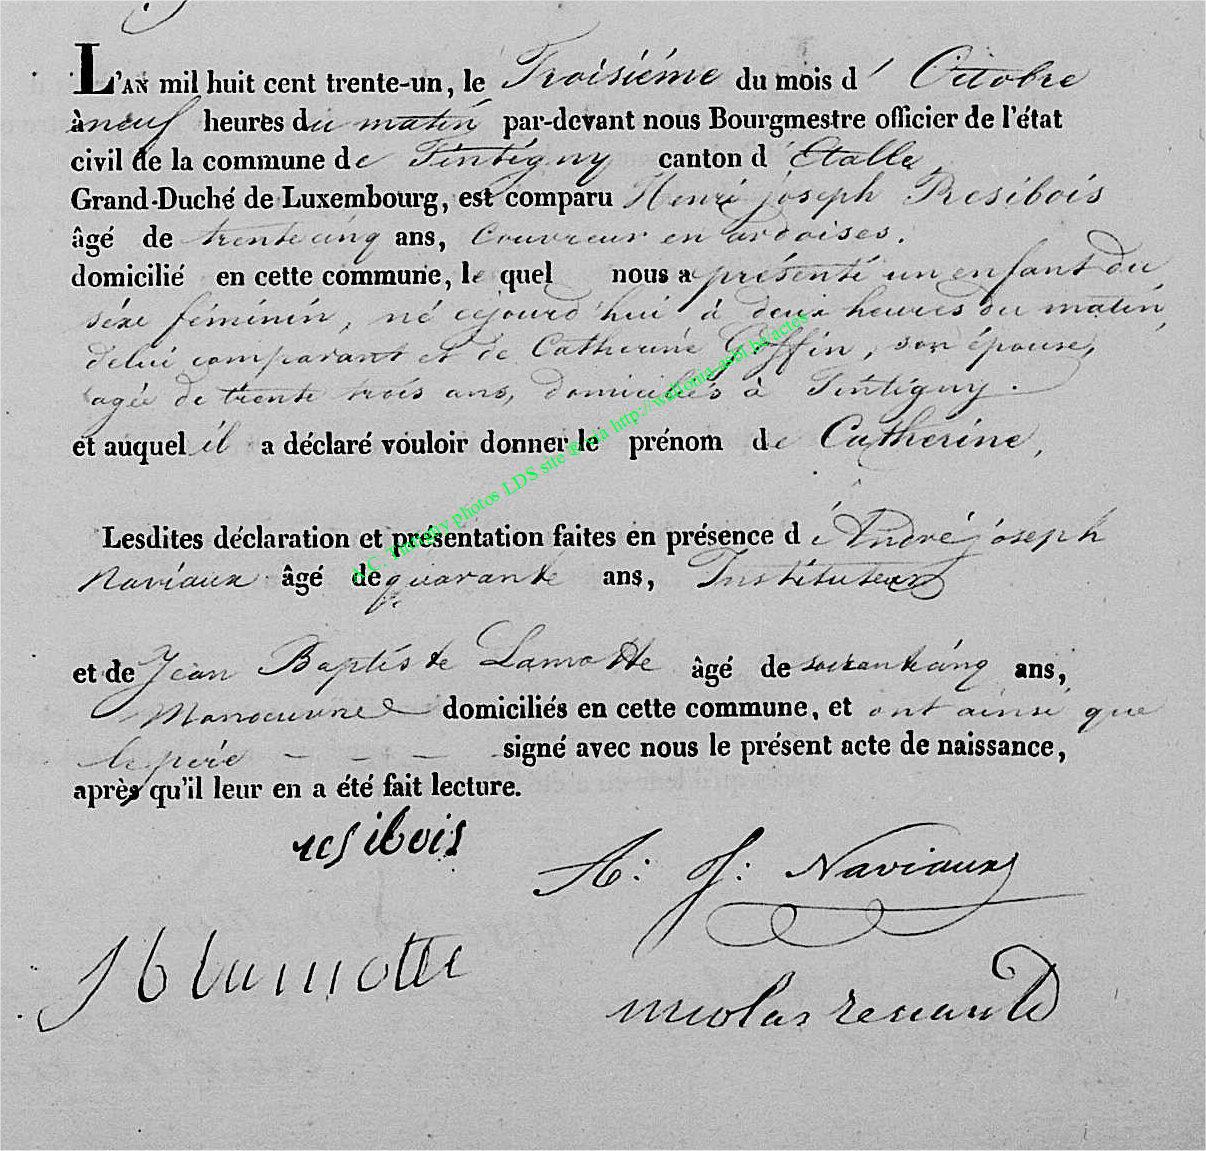 L'AN mil huit cent trente-un, le Troisiéme du mois d' Octobre
à neuf heures du matin par-devant nous Bourgmestre officier de l'état
civil de la commune de Tintigny canton d' Etalle
Grand-Duché de Luxembourg, est comparu Henri joseph Resibois
âgé de trente cinq ans, Couvreur en ardoises.
domicilié en cette commune, le quel nous a présenté un enfant du
séxe féminin, né cejourd'hui à deux heures du matin,
delui comparant et de Catherine Goffin, son épouse,
agée de trente trois ans, domiciliés à Tintigny.
et auquel il a déclaré vouloir donner le prénom de Catherine,
Lesdites déclaration et présentation faites en présence d' André joseph
Naviaux âgé de quarante ans, Instituteur
et de Jean Baptiste Lamotte âgé de soixante cinq ans,
Manoeuvre domiciliés en cette commune, et ont ainsi que
le père - - - signé avec nous le présent acte de naissance,
après qu'il leur en a été fait lecture.
resibois
A: J: Naviaux
J b lamotte
nicolas renauld
A.C. Tintigny photos LDS site @ via http://wallonia-asbl.be/actes